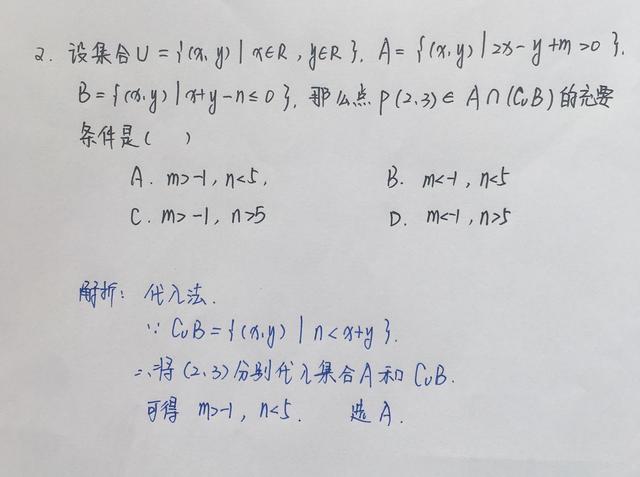 2. 设集合U={(x,y)|x∈R,y∈R}, A={(x,y)|2x-y+m>0},
B={(x,y)|x+y-n≤0}, 那么点P(2,3)∈A∩(∁ᵤB)的充要
条件是( )
A. m>-1, n<5, B. m<-1, n<5
C. m>-1, n>5 D. m<-1, n>5
解析: 代入法.
∵ ∁ᵤB={(x,y)|n<x+y}.
∴将(2,3)分别代入集合A和∁ᵤB.
可得 m>-1, n<5. 选A.